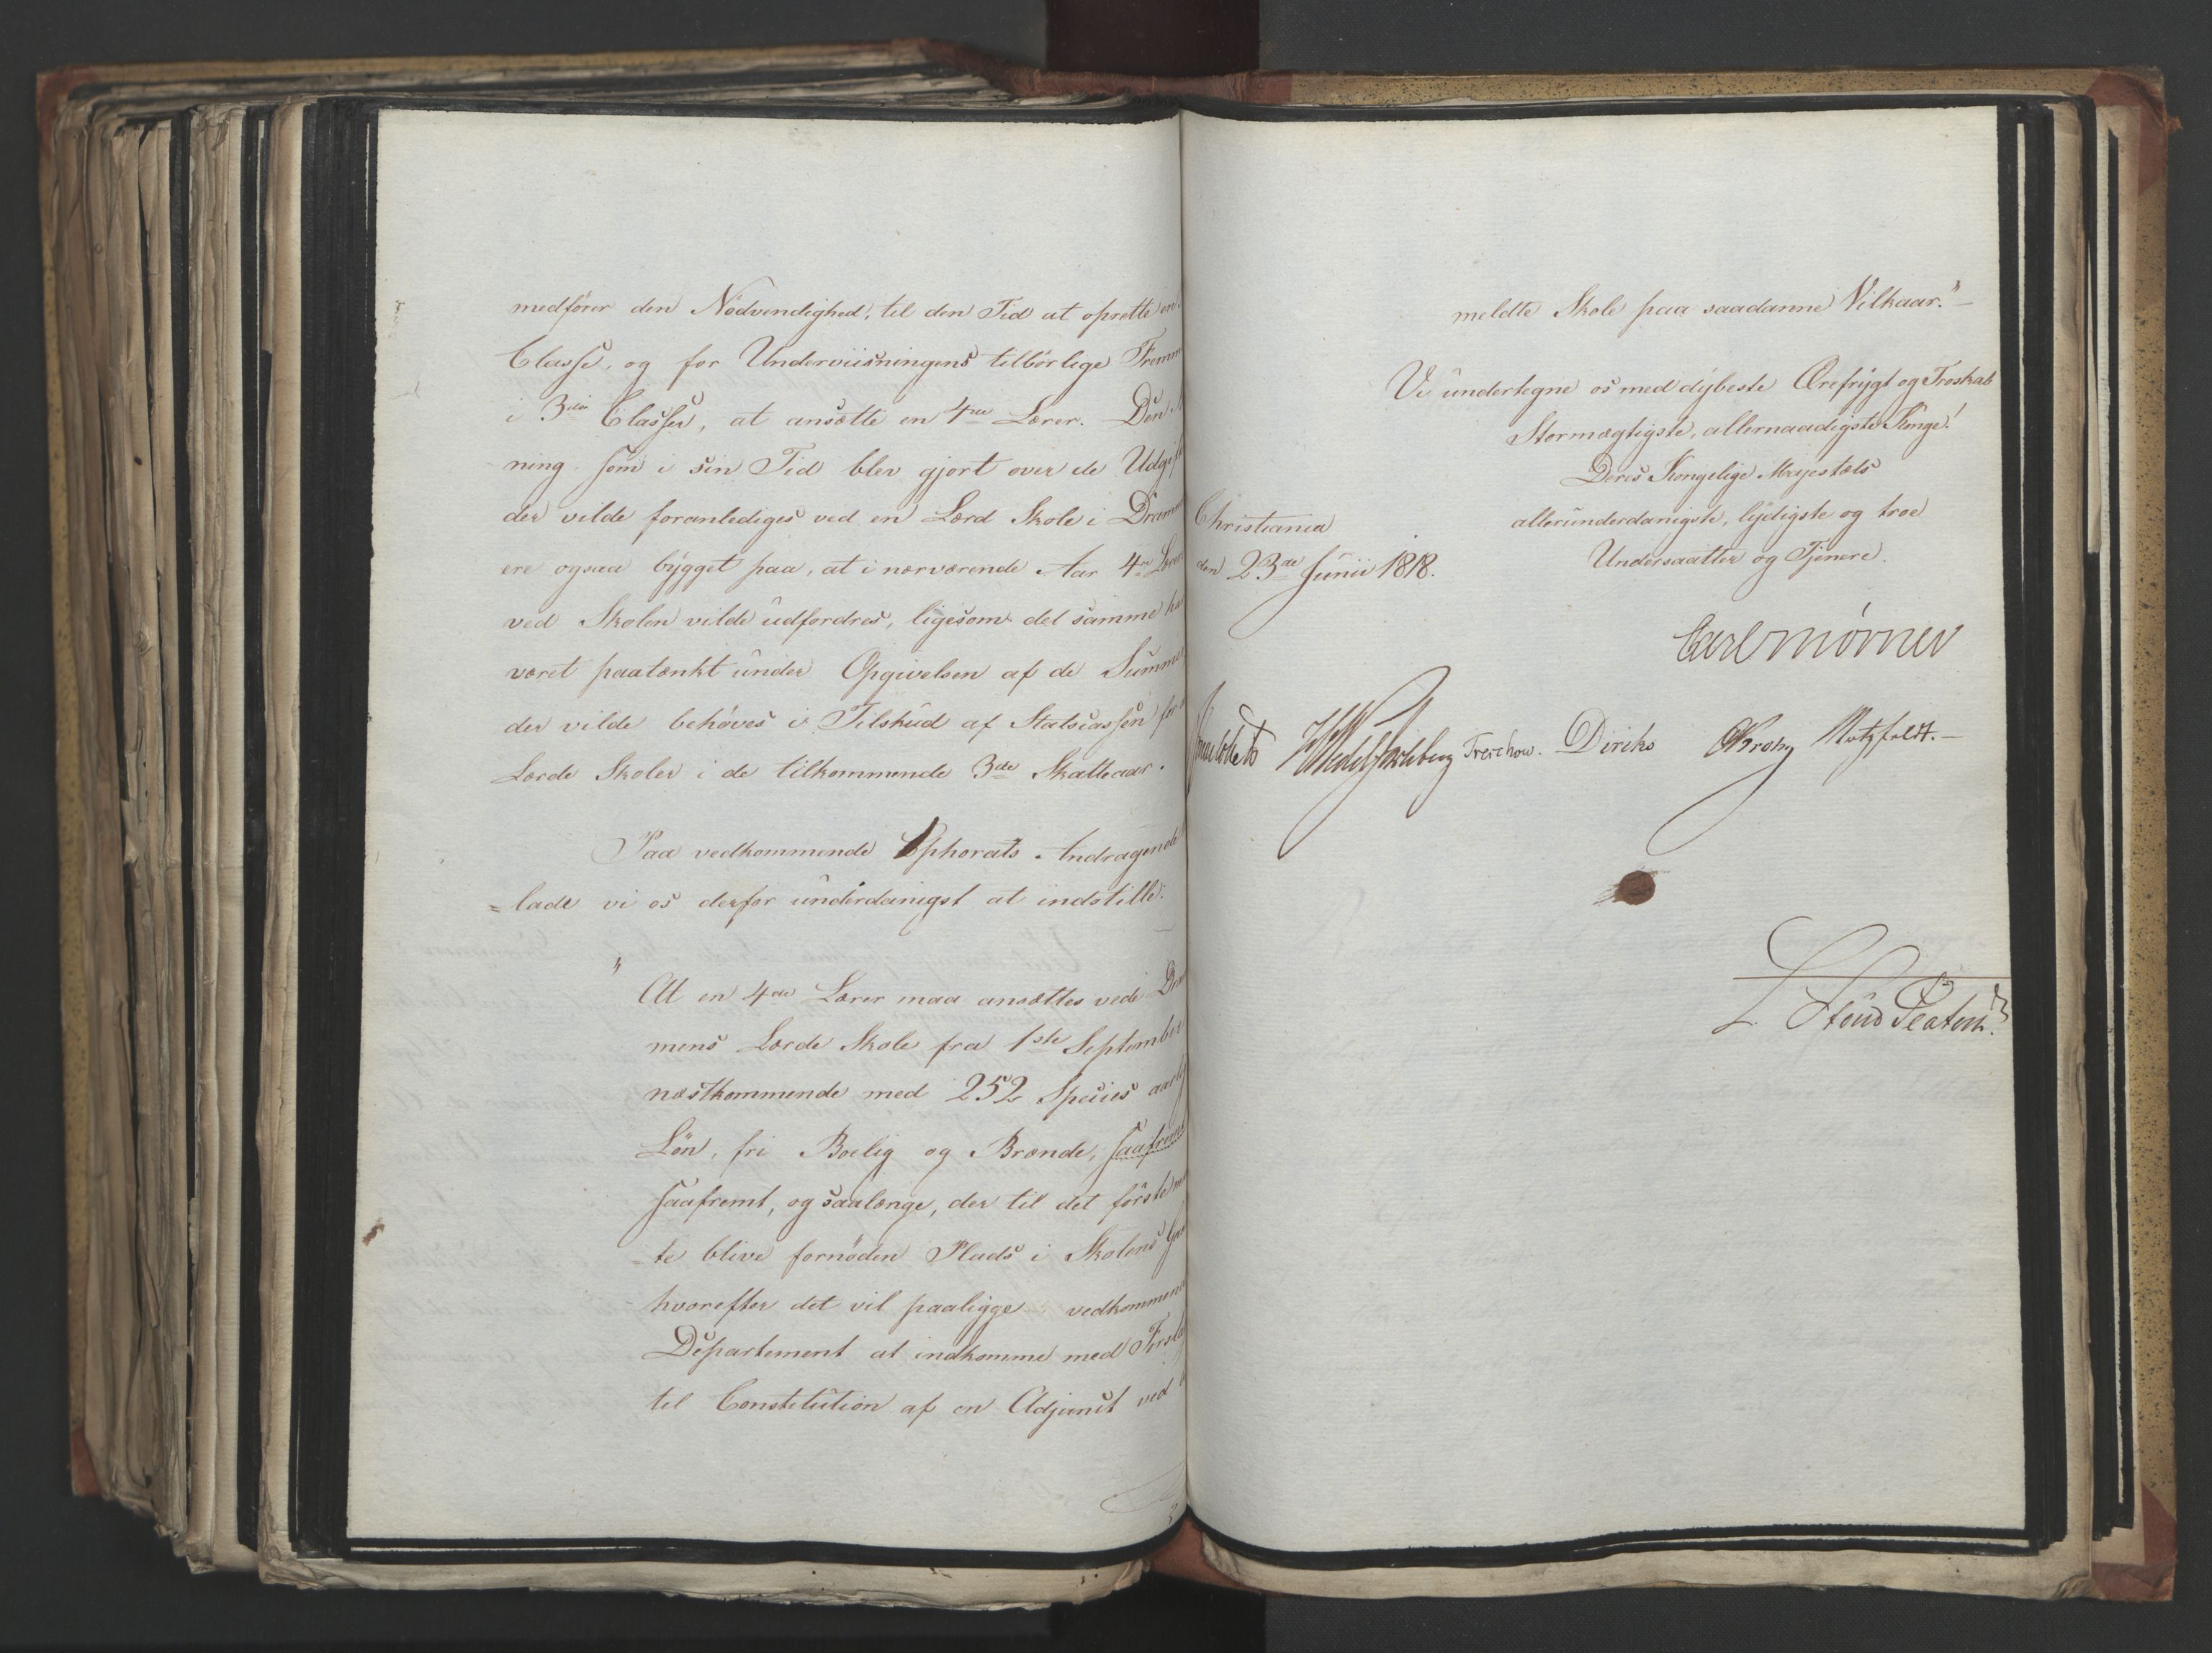 medfører den Nødvendighed, til den Tid at oprette en
Classe, og for Underviisningens tilbørlige Fremm
i 3die Classer, at ansætte en 4de Lærer. Den
ning som i sin Tid blev gjort over de Udgift
der vilde foranlediges ved en Lærd Skole i Dramm
ere ogsaa bygget paa, at i nærværende Aar 4re Lærer
ved Skolen vilde udfordres, ligesom det samme har
været paatænkt under Opgivelsen af de Summer
der vilde behøves i Tilskud af Statscassen for
Lærde Skoler i de tilkommende 3de Skatteaar.
Paa vedkommende Ephorats Andragende
= lade vi os derfor underdanigst at indstille:
" At en 4de Lærer maa ansættes ved Dra
mens Lærde Skole fra 1ste September
næstkommende med 252 Species aarlig
Løn, fri Boelig og Brænde, saafremt
saafremt, og saalænge, der til det første
te blive fornøden Plads i Skolens
hvorefter det vil paaligge vedkommen
Departement at indkomme med Forsla
til Constitution af en Adjunct ved
meldte Skole paa saadanne Vilkaar."
Vi undertegne os med dybeste Ærefrygt og Troskab
Stormægtigste, allernaadigste Konge!
Deres Kongelige Majestæts
allerunderdanigste, lydigste og troe
Undersaatter og Tjenere.
Christiania
den 23de Junii 1818.
Carl Mörner
Sommerfeldt HWedel Jarlsberg Treschow. Diriks CKrohg Motzfeldt.
L. Stoud Platou.